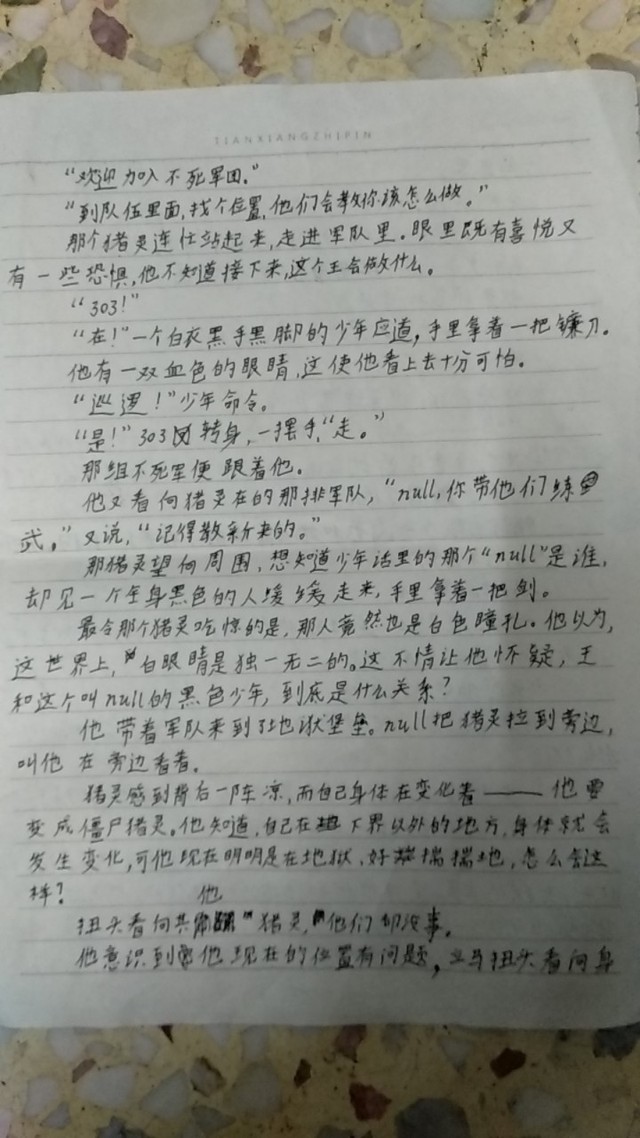 TIANXIANGZHIPIN
“欢迎加入不死军团。”
“到队伍里面,找个位置,他们会教你该怎么做。”
那个猪灵连忙站起来,走进军队里。眼里既有喜悦又
有一些恐惧,他不知道接下来,这个王会做什么。
“303!”
“在!”一个白衣黑手黑脚的少年应道,手里拿着一把镰刀。
他有一双血色的眼睛,这使他看上去十分可怕。
“巡逻!”少年命令。
“是!”303 转身,一摆手,“走。”
那组不死军便跟着他。
他又看向猪灵在的那排军队,“null,你带他们练
武。”又说,“记得教新来的。”
那猪灵望向周围,想知道少年话里的那个“null”是谁,
却见一个全身黑色的人缓缓走来,手里拿着一把剑。
最令那个猪灵吃惊的是,那人竟然也是白色瞳孔。他以为,
这世界上,白眼睛是独一无二的。这不情让他怀疑,王
和这个叫null的黑色少年,到底是什么关系?
他带着军队来到了地狱堡垒。null把猪灵拉到旁边,
叫他在旁边看着。
猪灵感到背后一阵凉,而自己身体在变化着——他要
变成僵尸猪灵。他知道,自己在下界以外的地方,身体就会
发生变化,可他现在明明是在地狱、好端端地,怎么会这
样?
他
扭头看向其 猪灵,他们却没事。
他意识到他现在的位置有问题,立马扭头看向身